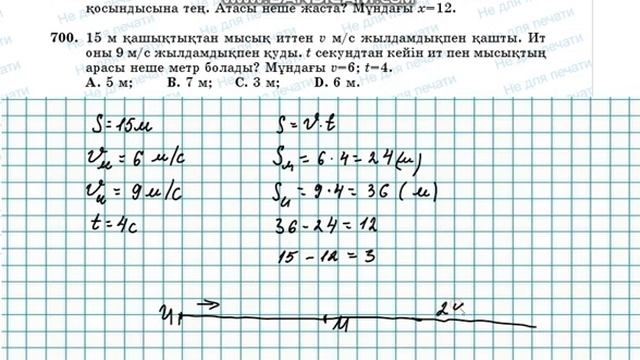 қосындысына тең. Атасы неше жаста? Мұндағы x=12.
700. 15 м қашықтықтан мысық иттен v м/с жылдамдықпен қашты. Ит
оны 9 м/с жылдамдықпен қуды. t секундтан кейін ит пен мысықтың
арасы неше метр болады? Мұндағы v=6; t=4.
A. 5 м; B. 7 м; C. 3 м; D. 6 м.
S=15м
S=v·t
vм = 6 м/с
Sм = 6·4 = 24(м)
vи = 9 м/с
Sи = 9·4 = 36 (м)
t=4с
36-24=12
15-12=3
И
М
24
Не для печати